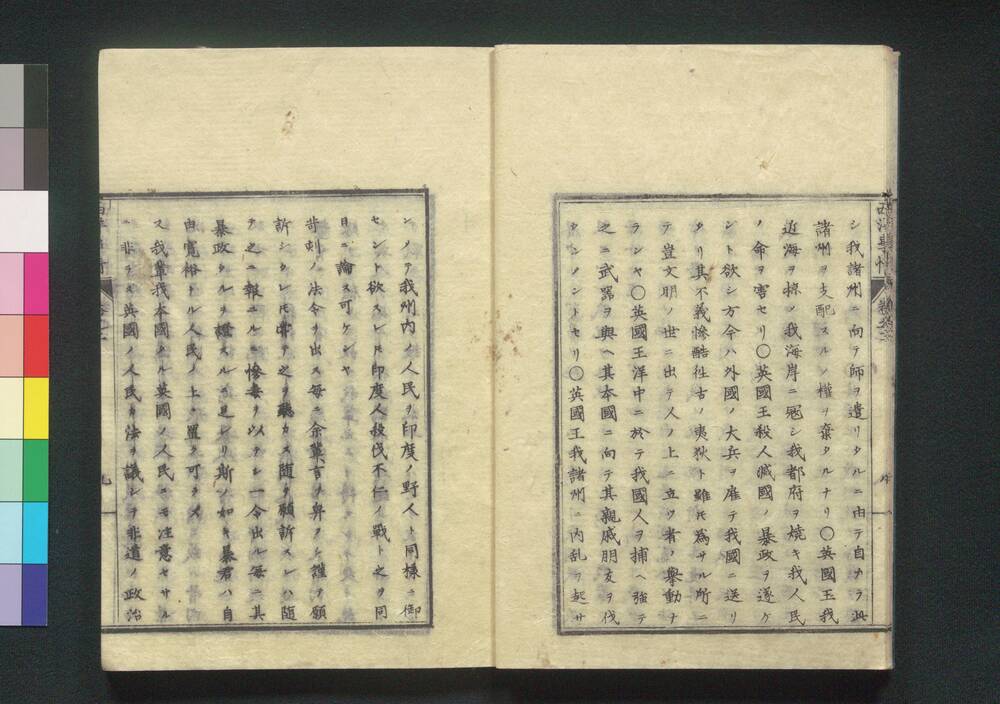 シ我諸州ニ向テ師ヲ遣リタルニ由テ自カラ此
諸州ヲ支配スルノ權ヲ棄タルナリ〇英國王我
近海ヲ掠メ我海岸ニ冦シ我都府ヲ燒キ我人民
ノ命ヲ害セリ〇英國王殺人滅國ノ暴政ヲ遂ケ
ント欲シ方今ハ外國ノ大兵ヲ雇テ我國ニ送リ
タリ其不義慘酷徃古ノ夷狄ト雖モ為サル所ニ
テ豈文明ノ世ニ出テ人ノ上ニ立ツ者ノ擧動ナ
ランヤ〇英國王洋中ニ於テ我國人ヲ捕ヘ強テ
之ニ武噐ヲ與ヘ其本國ニ向テ其親戚朋友ヲ伐
タシメントセリ〇英國王我諸州ニ内乱ヲ起サ
シメテ我州内ノ人民ヲ印度ノ野人ト同樣ニ御
セント欲スレ𪜈印度人殺伐不仁ノ戰ト之ヲ同
日ニ論ス可ケンヤ
苛刺ノ法令ヲ出ス毎ニ余輩言ヲ卑フシ謹テ願
訴シタレ𪜈甞テ之ヲ聽カス隨テ願訴スレハ隨
テ之ニ報ユルニ慘毒ヲ以テシ一令出ル毎ニ其
暴政タルヲ證スルニ足レリ斯ノ如キ暴君ハ自
由寛裕ナル人民ノ上ニ置ク可ラス
ス我輩我本國タル英國ノ人民ニモ注意セサル
ニ非ラス英國ノ人民カ法ヲ議シテ非道ノ政治
西洋事情
九